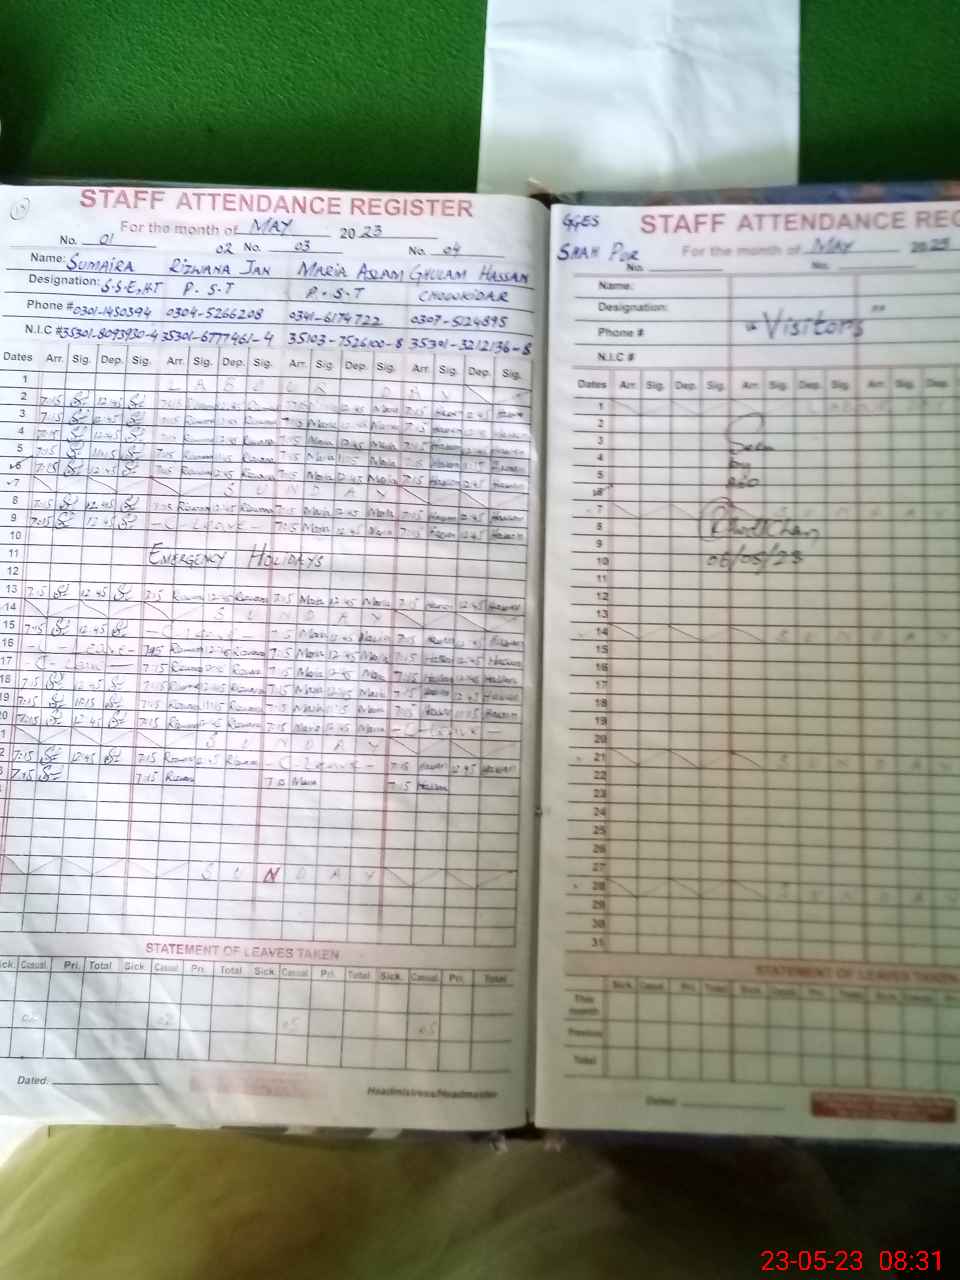 STAFF ATTENDANCE REGISTER
For the month of MAY 2023
No. 01 02 No. 03 No. 04
Name: SUMAIRA RIZWANA JAN MARIA ASLAM GHULAM HASSAN
Designation: S.S.E, H.T P.S.T P.S.T CHOWKIDAR
Phone # 0301-1450394 0304-5266208 0341-6174722 0307-5124895
N.I.C # 35301-8093930-4 35301-6777461-4 35103-7526100-8 35301-3212136-8
Dates Arr. Sig. Dep. Sig. Arr. Sig. Dep. Sig. Arr. Sig. Dep. Sig. Arr. Sig. Dep. Sig.
1 LABOUR DAY
2 7:15 12:45 7:15 12:45 Maria 7:15 12:45
3 7:15 12:45 Rizwana 12:45 Rizwana 7:15 Maria 12:45 Maria 7:15 Hassan 12:45 Hassan
4 7:15 12:45 Rizwana 12:45 Rizwana 7:15 Maria 12:45 Maria 7:15 Hassan 12:45 Hassan
5 7:15 11:15 7:15 Rizwana Rizwana 7:15 Maria 11:15 Maria 7:15 Hassan 11:15 Hassan
6 7:15 12:45 7:15 Rizwana 12:45 Rizwana 7:15 Maria 12:45 Maria 7:15 Hassan 12:45 Hassan
7 SUNDAY
8 7:15 12:45 7:15 Rizwana 12:45 Rizwana 7:15 Maria 12:45 Maria 7:15 Hassan 12:45 Hassan
9 7:15 12:45 - C - Leave - 7:15 Maria 12:45 Maria 7:15 Hassan 12:45 Hassan
10
11 EMERGENCY HOLIDAYS
12
13 7:15 12:45 7:15 Rizwana 12:45 Rizwana 7:15 Maria 12:45 Maria 7:15 Hassan 12:45 Hassan
14 SUNDAY
15 7:15 12:45 - C - Leave - 7:15 Maria 12:45 Maria 7:15 Hassan 12:45 Hassan
16 - C - Leave - 7:15 Rizwana 12:45 Rizwana 7:15 Maria 12:45 Maria 7:15 Hassan 12:45 Hassan
17 - C - Leave - 7:15 Rizwana Rizwana 7:15 Maria 12:45 Maria 7:15 Hassan 12:45 Hassan
18 7:15 12:45 7:15 Rizwana 12:45 Rizwana 7:15 Maria 12:45 Maria 7:15 12:45 Hassan
19 7:15 11:15 7:15 Rizwana 11:15 Rizwana 7:15 Maria 11:15 Maria 7:15 Hassan 11:15 Hassan
20 7:15 12:45 7:15 Rizwana 12:45 Rizwana 7:15 Maria 12:45 Maria - C - Leave -
1 SUNDAY
2 7:15 12:45 7:15 Rizwana 12:45 Rizwana - C - Leave - 7:15 Hassan 12:45 Hassan
7:15 7:15 Rizwana Maria 7:15 Hassan
SUNDAY
STATEMENT OF LEAVES TAKEN
Sick. Casual. Pri. Total Sick. Casual. Pri. Total Sick. Casual. Pri. Total Sick. Casual. Pri. Total
02 05 05
Dated:
Headmistress/Headmaster
GGES
SHAH PUR
STAFF ATTENDANCE REG
For the month of MAY 2023
No. No.
Name:
Designation:
Phone # "Visitors"
N.I.C #
Dates Arr. Sig. Dep. Sig. Arr. Sig. Dep. Sig. Arr. Sig. Dep.
1
2
3 Seen
4 by
5
6
7
8
9
10 06/05/23
11
12
13
14
15
16
17
18
19
20
21
22
23
24
25
26
27
28
29
30
31
STATEMENT OF LEAVES TAKEN
Sick. Casual. Pri. Total Sick. Casual. Pri. Total Sick. Casual. Pri.
This month
Previous
Total
Dated:
23-05-23 08:31